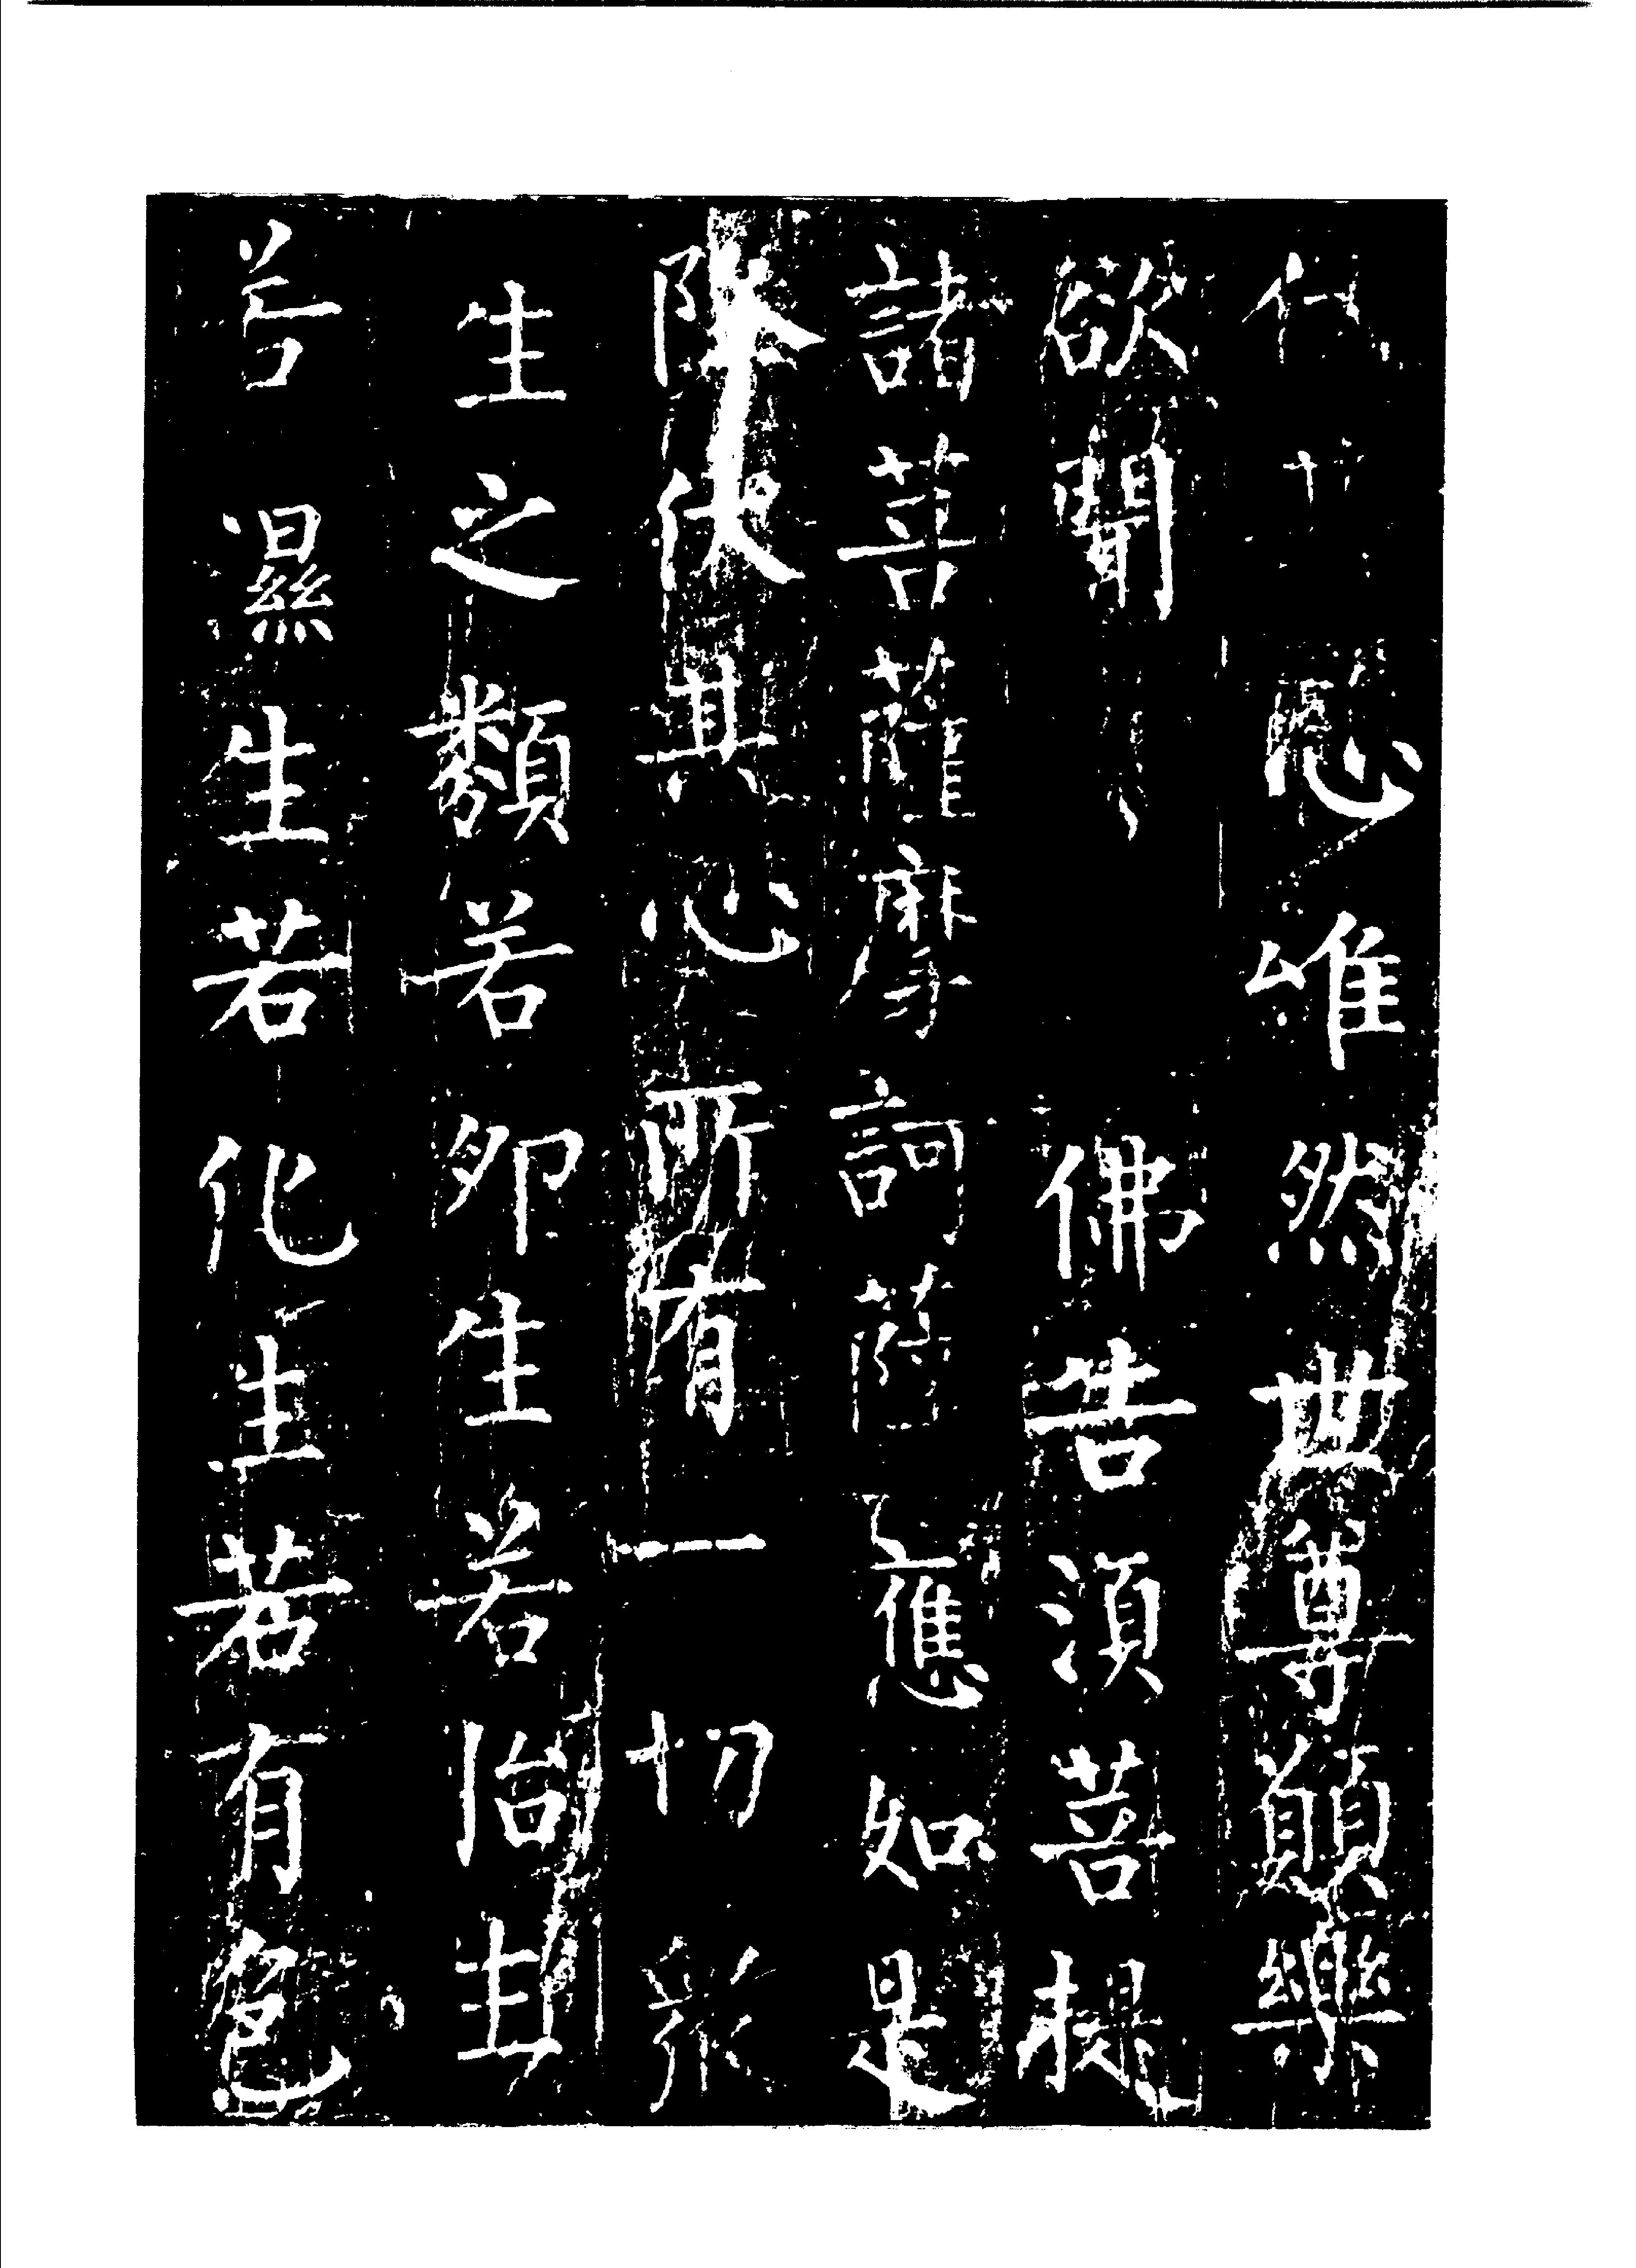 伏其心唯然世尊願樂
欲聞佛告須菩提
諸菩薩摩訶薩應如是
降伏其心所有一切眾
生之類若卵生若胎生
若濕生若化生若有色